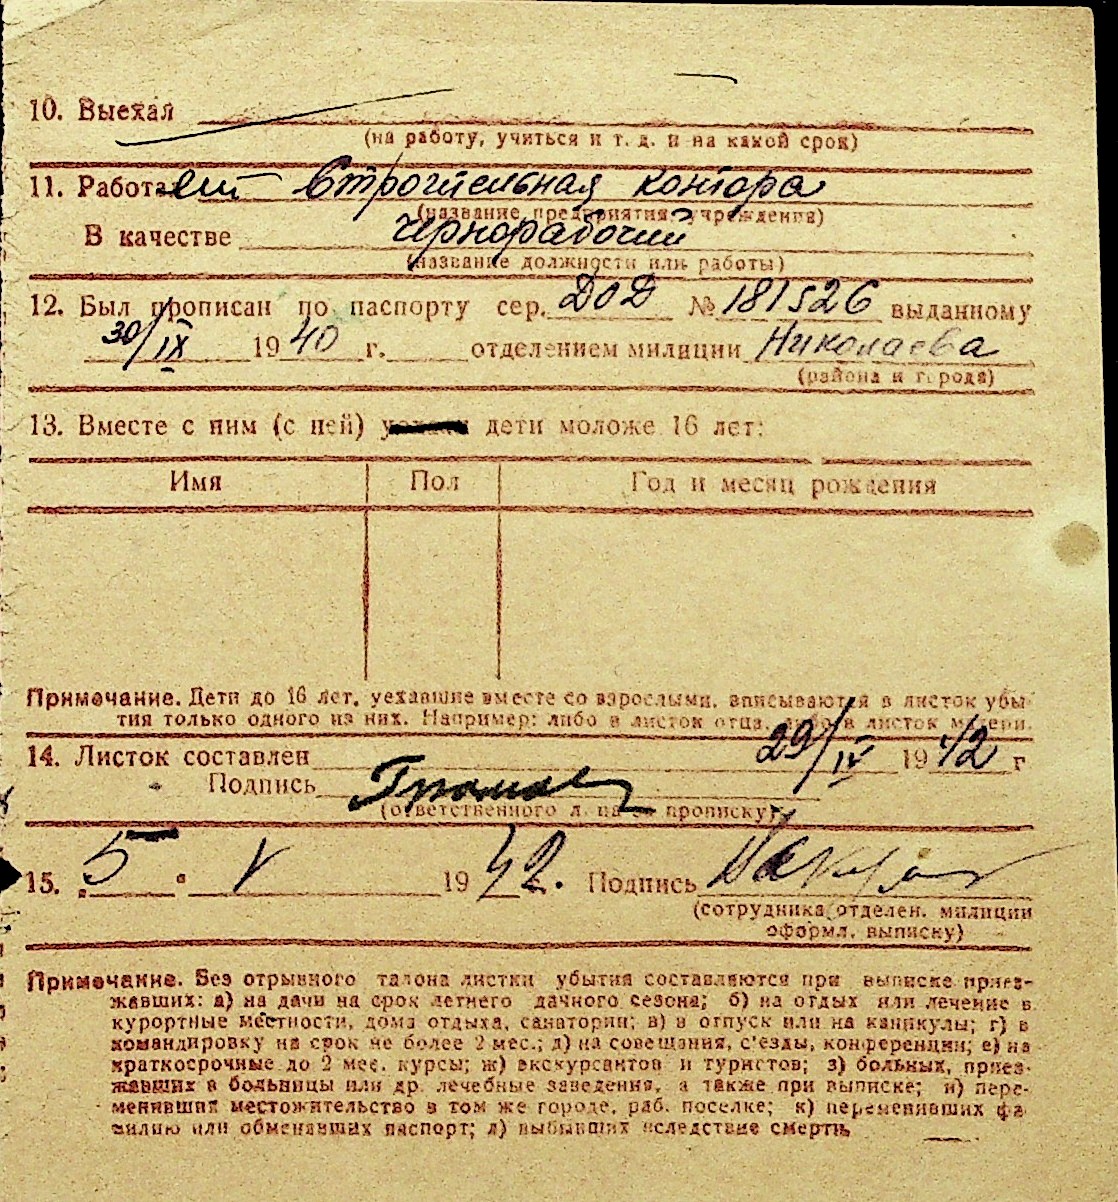 10. Выехал
(на работу, учиться и т. д. и на какой срок)
11. Работает Строительная контора
(название предприятия, учреждения)
В качестве чернорабочий
(название должности или работы)
12. Был прописан по паспорту сер. ДОД № 181526 выданному
30/IX 1940 г. отделением милиции Николаева
(района и города)
13. Вместе с ним (с ней) дети моложе 16 лет:
Имя Пол Год и месяц рождения
Примечание. Дети до 16 лет, уехавшие вместе со взрослыми, вписываются в листок убы-
тия только одного из них. Например: либо в листок отца, либо в листок матери.
14. Листок составлен 29/IV 1942 г
Подпись
(ответственного л. за прописку)
15. „5" V 1942. Подпись
(сотрудника отделен. милиции
оформл. выписку)
Примечание. Без отрывного талона листки убытия составляются при выписке приез-
жавших: а) на дачи на срок летнего дачного сезона; б) на отдых или лечение в
курортные местности, дома отдыха, санатории; в) в отпуск или на каникулы; г) в
командировку на срок не более 2 мес.; д) на совещания, с'езды, конференции; е) на
краткосрочные до 2 мес. курсы; ж) экскурсантов и туристов; з) больных, приез-
жавших в больницы или др. лечебные заведения, а также при выписке; и) пере-
менивших местожительство в том же городе, раб. поселке; к) переменивших фа
милию или обменявших паспорт; л) выбывших вследствие смерти.